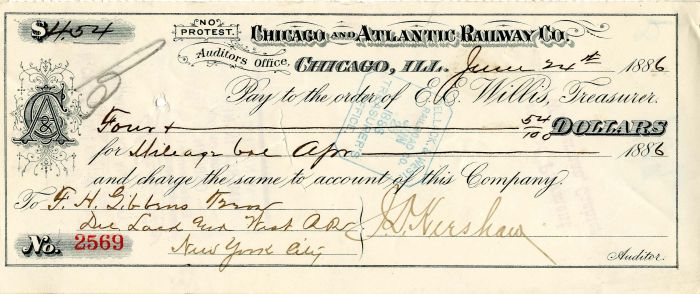 $4.54
NO PROTEST.
CHICAGO AND ATLANTIC RAILWAY CO.
Auditors Office, CHICAGO, ILL. June 24th 1886
Pay to the order of C. C. Willis, Treasurer.
Four & 54/100 DOLLARS
for Mileage bal Apr 1886
and charge the same to account of this Company.
To F. H. Gibbens Treas
West
New York City
No. 2569
Auditor.
6
C&A
TREASURER'S OFFICE
1886